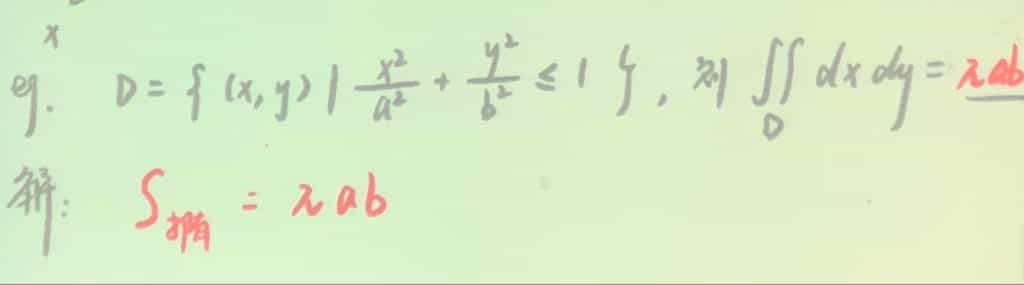 x
eg. D = { (x, y) | x²/a² + y²/b² ≤ 1 }, 则 ∬_D dx dy = πab
解: S椭 = πab